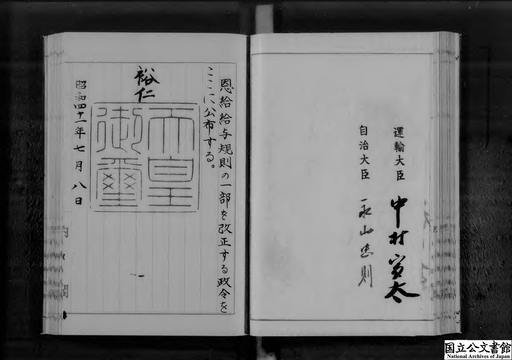 運輸大臣 中村寅太
自治大臣 永山忠則
恩給給与規則の一部を改正する政令を
ここに公布する。
裕仁
天皇
御璽
昭和四十一年七月八日
国立公文書館
National Archives of Japan